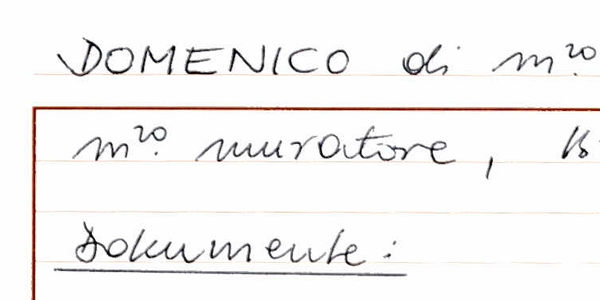 DOMENICO di m.ro
m.ro muratore,
Dokumente: